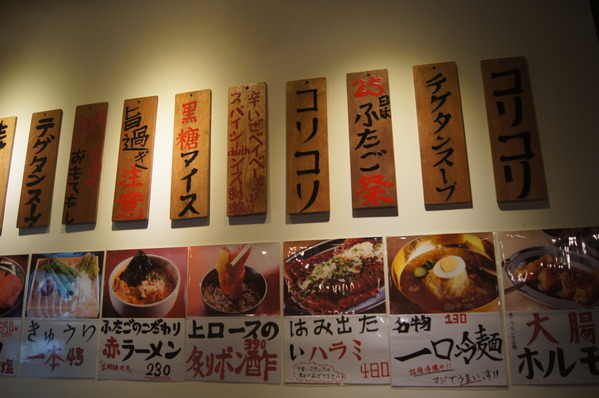 テグタンスープ
おもてなし
旨過ぎ
注意
黒糖アイス
辛いぜベイベー
コリコリ
25日は
ふたご祭
テグタンスープ
コリコリ
きゅうり
一本 45
ふたごのこだわり
赤ラーメン
230
上ロースの
炙りポン酢
390
はみ出た
いハラミ
480
名物 130
一口冷麺
マジでうまい、す!!
大腸
ホルモ